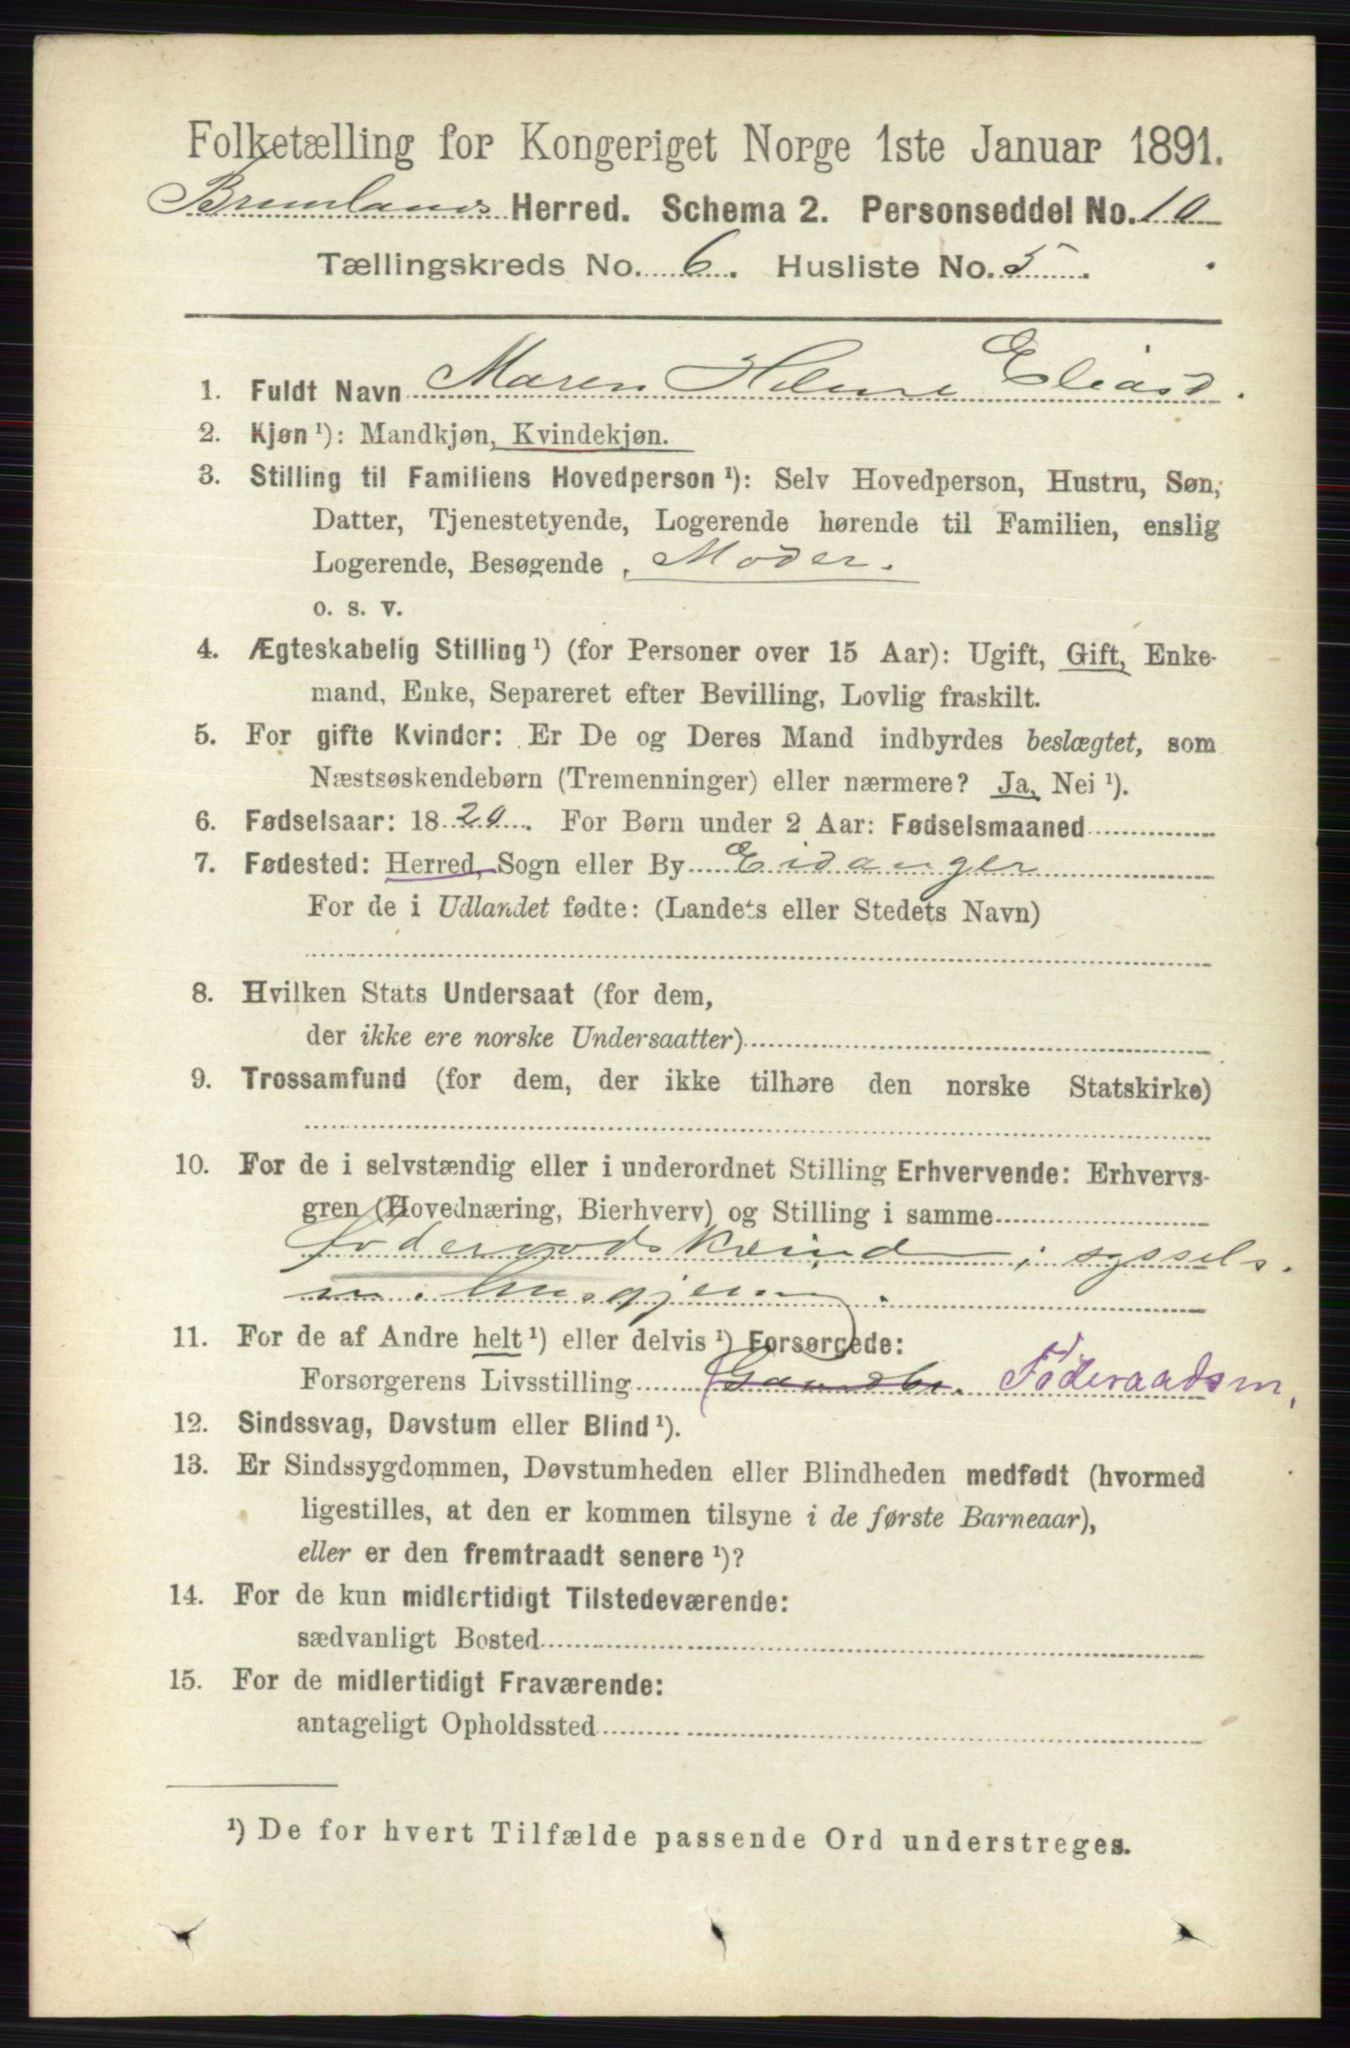 Folketælling for Kongeriget Norge 1ste Januar 1891.
Brunlanes Herred. Schema 2. Personseddel No. 10
Tællingskreds No. 6. Husliste No. 5.
1. Fuldt Navn Maren Helene Eliasd.
2. Kjøn ¹): Mandkjøn, Kvindekjøn.
3. Stilling til Familiens Hovedperson ¹): Selv Hovedperson, Hustru, Søn,
Datter, Tjenestetyende, Logerende hørende til Familien, enslig
Logerende, Besøgende, Moder.
o. s. v.
4. Ægteskabelig Stilling ¹) (for Personer over 15 Aar): Ugift, Gift, Enke-
mand, Enke, Separeret efter Bevilling, Lovlig fraskilt.
5. For gifte Kvinder: Er De og Deres Mand indbyrdes beslægtet, som
Næstsøskendebørn (Tremenninger) eller nærmere? Ja, Nei ¹).
6. Fødselsaar: 1820. For Børn under 2 Aar: Fødselsmaaned
7. Fødested: Herred, Sogn eller By Eidanger
For de i Udlandet fødte: (Landets eller Stedets Navn)
8. Hvilken Stats Undersaat (for dem,
der ikke ere norske Undersaatter)
9. Trossamfund (for dem, der ikke tilhøre den norske Statskirke)
10. For de i selvstændig eller i underordnet Stilling Erhvervende: Erhvervs-
gren (Hovednæring, Bierhverv) og Stilling i samme
Foderaadskvind i syssels.
m. Husgjerning.
11. For de af Andre helt ¹) eller delvis ¹) Forsørgede:
Forsørgerens Livsstilling (Gaardbr. Föderaadsm,
12. Sindssvag, Døvstum eller Blind ¹).
13. Er Sindssygdommen, Døvstumheden eller Blindheden medfødt (hvormed
ligestilles, at den er kommen tilsyne i de første Barneaar),
eller er den fremtraadt senere ¹)?
14. For de kun midlertidigt Tilstedeværende:
sædvanligt Bosted
15. For de midlertidigt Fraværende:
antageligt Opholdssted
¹) De for hvert Tilfælde passende Ord understreges.